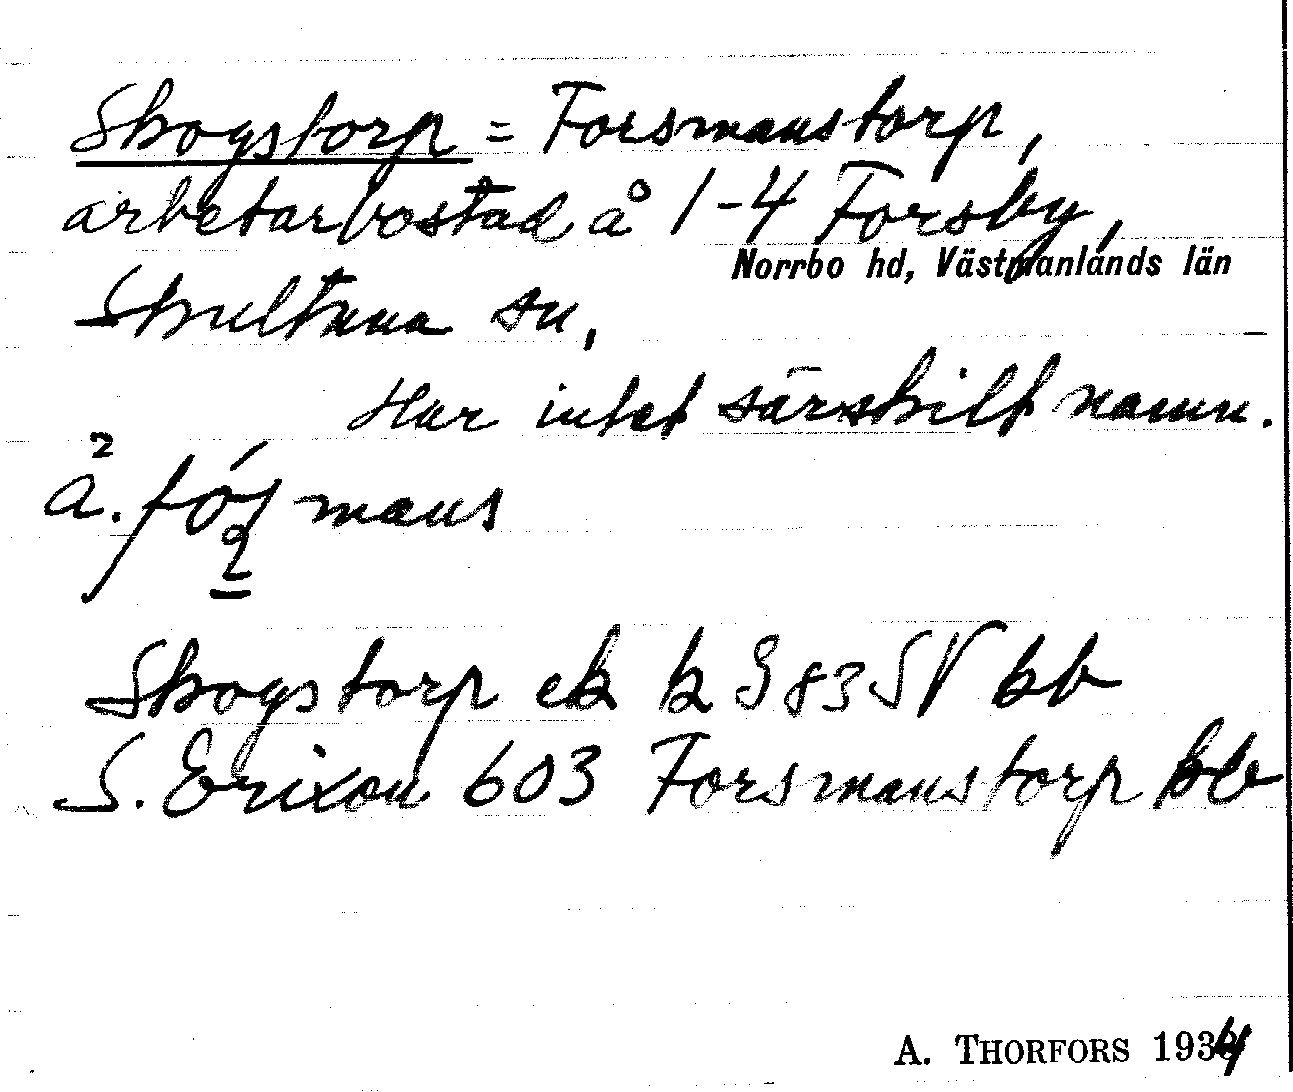 Skogstorp = Forsmanstorp,
arbetarbostad å 1-4 Forsby,
Norrbo hd, Västmanlands län
Skultuna sn,
Har intet särskilt namn.
mans
Skogstorp ek k S 83 SV bb
S. Erixon 603 Forsmanstorp bb
A. THORFORS 1934